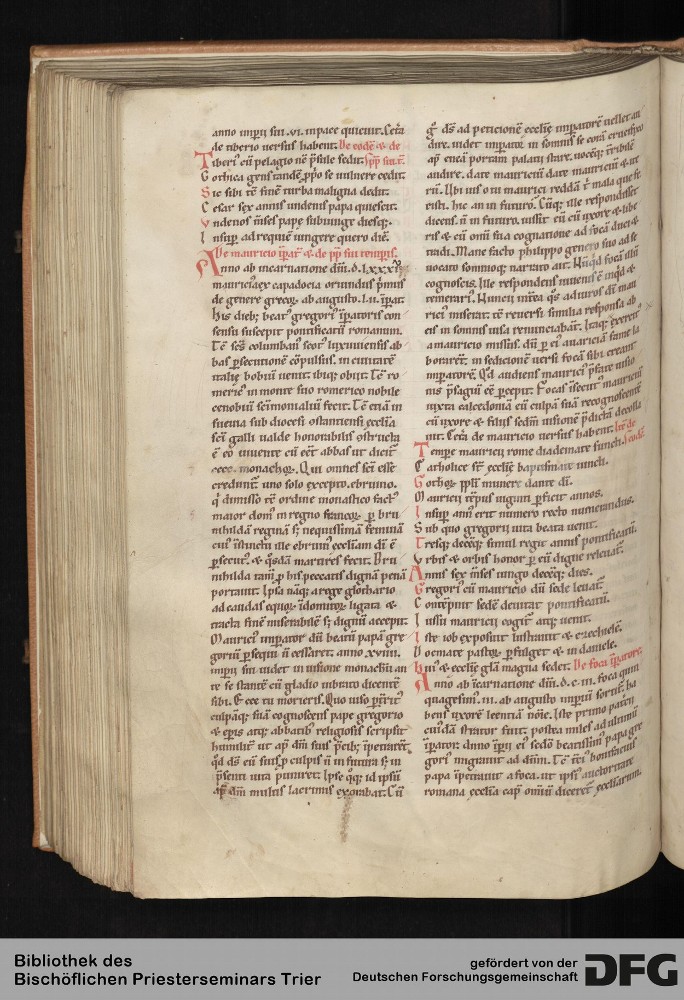 anno imp̄ii sui .vi. in pace quieuit. Cet̄a
de tiberio uersus habent. De eodē & de
Tiberi' cū pelagio nē p̄sule sedit. pp̄ sui t̄.
Gothica gens tandē p̄po se uulnere cedit.
Sic sibi tē finē turba maligna dedit.
Cesar sex annis undenis papa quiescit.
Vndenos m̄ses pape subiunge diesq;
Insup̄ ad requiē iungere quero diē.
De mauricio īpat̄ & de pp̄ sui temp̄is.
Anno ab incarnatione dn̄i. d. lxxx
mauricius ex capadocia oriundus p̄mus
de genere grecoꝝ ab augusto. l.ii. īpat̄.
His dieb; beat' gregori' īpatoris con
sensu suscepit pontificatū romanum.
Tē sc̄s columban' scot' luxouiensis ab
bas p̄secutione cōpulsus. in ciuitatē
italię bobiū uenit. ibiq; obiit. Tē ro
meric' in monte suo romerico nobile
cenobiū sc̄imonialiū fecit. Tē etiā in
sueuia sub diocesi
sc̄i galli ualde honorabilis
ē eo uiuente cū eēt abbas ut dicit̄
monachoꝝ. Qui omnes sc̄i esse
credunt̄. uno solo excepto. ebruino.
q̄ dimisso tē ordine monastico fact'
maior dom' in regno francoꝝ p̄ bru
nihildā reginā sꝫ nequissimā feminā
cui' istinctu ille ebruin' eccliam dī ē
p̄secut'. & q̄sdā martires fecit. Bru
nihilda tam̄ p̄ his peccatis dignā penā
portauit. Ipsa nāq; a rege glothario
ad caudas equoꝝ īdomitoꝝ ligata &
tracta. finē miserabilē sꝫ dignū accepit.
Maurici' impator dū beatū papā gre
goriū p̄sequi n̄ cessaret. anno .xviiii.
imp̄ii sui uidet in uisione monachū an
te se stantē cū gladio uibrato dicentē
sibi. E ecce tu morieris. Quo uiso p̄t̄rit'
culpāq; suā cognoscens pape gregorio
& ep̄is atq; abbatib' religiosis scripsit
humilit̄ ut ap̄ dm̄ suis p̄cib; īpetraret
q̄d ds̄ eū suis p̄ culpis n̄ in futura sꝫ in
p̄senti uita puniret. Ipse q̄q; id ipsū
ap̄ dm̄ multis lacrimis exorabat. Cū
q̄ ds̄ ad peticionē ecclię impatorē uellet au
dire. uidet impator in somnis se corā
ap̄ eneā portam palatii stare. uocēq; t̄ribilē
audire. date mauriciū date mauriciū &
rū. Ubi uis o tu maurici reddā t̄ mala que fe
cisti. hic an in futuro. Cūq; ille respondisset
dicens. n̄ in futuro. iussit eū cū uxore & libe
ris & cū om̄i sua cognatione ad focā duci &
tradi. Mane facto philippo genero suo ad se
uocato somnioq; narrato ait. Nūq̄d focā illū
cognoscis. Ille respondens iuuenē ē inq̄d &
temerari'. Nuncii int̄ea q̄s ad uiros dī mau
rici' miserat. tē reuersi similia responsa ab
eis in somnis uisa renunciabāt. Itaq; exercit'
a mauricio missus. dū p̄ ei' auariciā fame la
boraret. in sedicionē uersi focā sibi creant
impatorē. Qd̄ audiens maurici' p̄fate uisio
nis p̄sagiū eē p̄cepit. Focas īsecut' mauriciū
iuxta calcedoniā cū culpā suā recognoscentē
cū uxore & filiis scdm̄ uisionē p̄dictā decolla
uit. Cet̄a de mauricio uersus habent. Itē de
Tempe mauricii rome diademate functi. eodē
Catholice fit ecclię baptismate iuncti.
Gothoꝝ ppl̄i munere dante dī.
Mauricii tēpus uiginti p̄ficit annos.
Insup̄ ann' erit numero recto numerandus.
Sub quo gregorii uita beata uenit.
Tresq; decēq; simul regit annis pontificatū.
Vrbis & orbis honor p̄ eū digne releuat̄.
Annis sex m̄ses iungo decēq; dies.
Gregori' cū mauricio dū sede leuat̄.
Contēpnit sedē deuitat pontificatū.
Iussu mauricii cogit̄ atq; uenit.
Iste iob exposuit lustrauit & ezechielē.
Docmate pastoꝝ p̄fulget & in daniele.
Hui' & ecclię gl̄a magna sedet. De foca īpatore.
Anno ab īcarnatione dn̄i. d.c.iii. foca quin
quagesim'.iii. ab augusto imp̄iū sortit̄. ha
bens uxorē leentiā nōie. Iste primo patricii
cui'dā strator fuit. postea miles ad ultimū
īpator. Anno īp̄ii ei' sc̄do beatissim' papa gre
gori' migrauit ad dn̄m. Tē t̄ci' bonifacius
papa īpetrauit a foca. ut ipsi' auctoritate
romana ecclia cap̄ om̄iū diceret̄ ecclesiarum.
Bibliothek des
Bischöflichen Priesterseminars Trier
gefördert von der
Deutschen Forschungsgemeinschaft
DFG